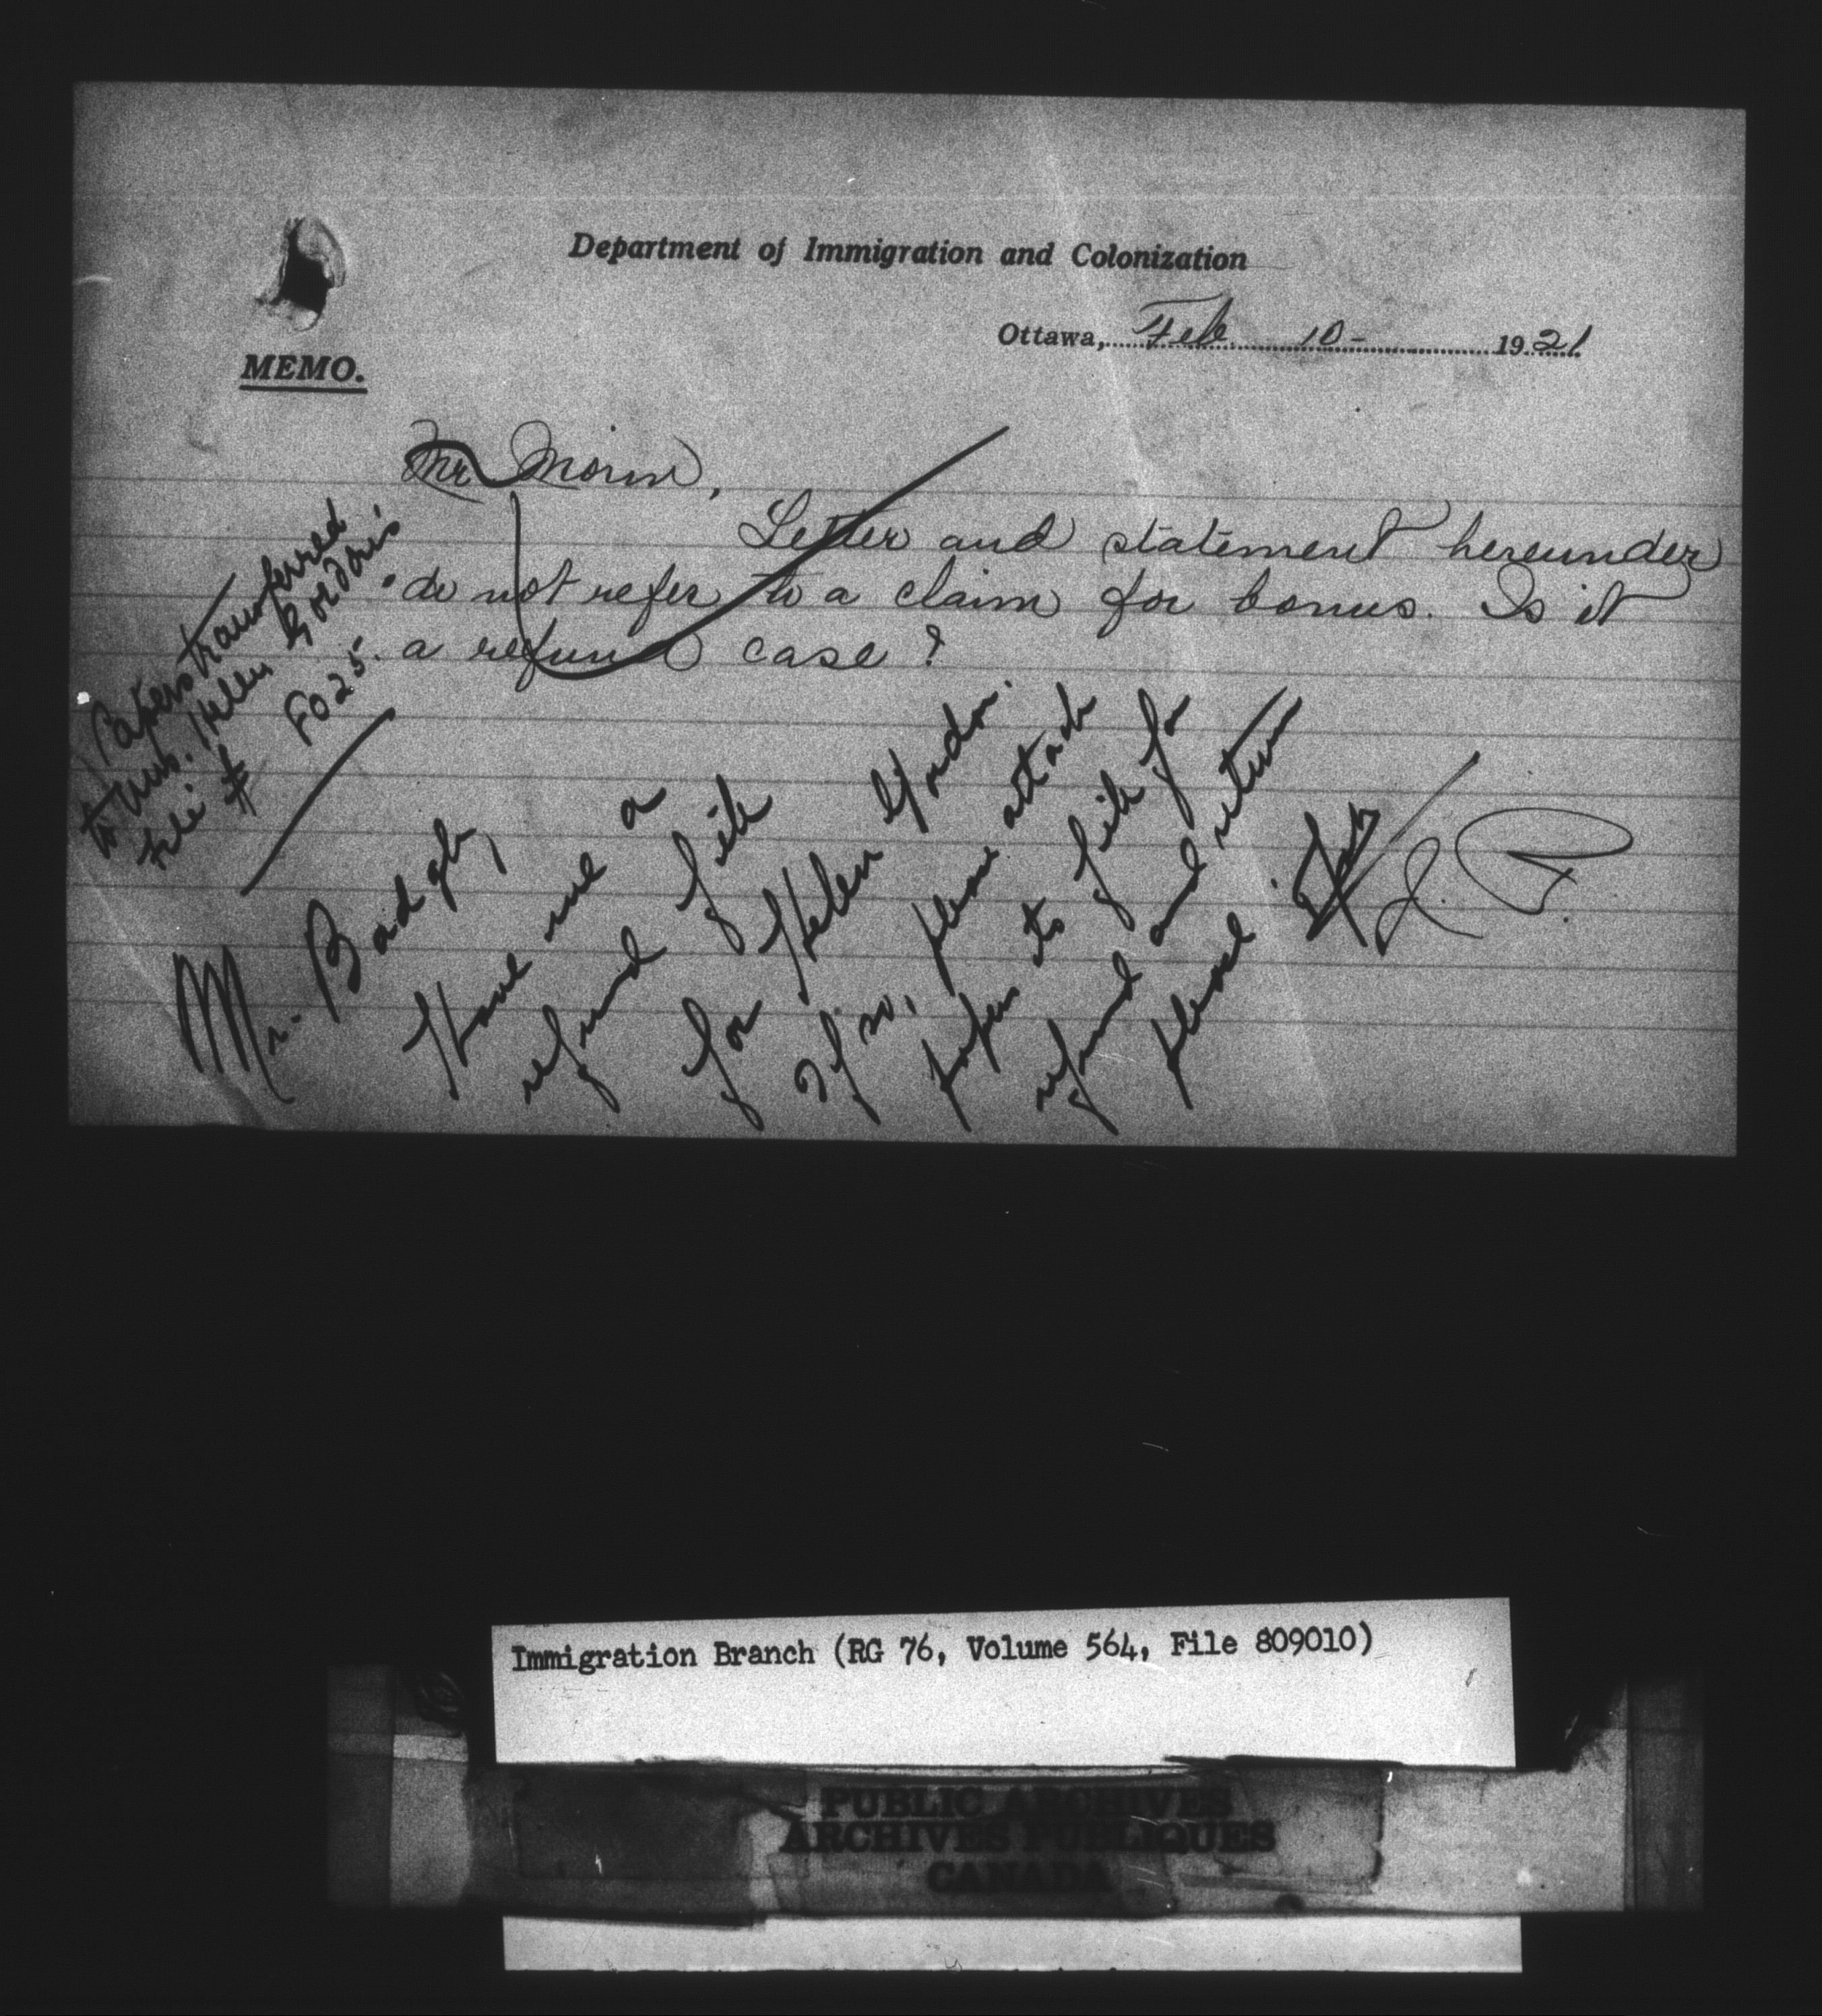 Department of Immigration and Colonization
Ottawa, Feb 10- 1921
MEMO.
Mr Morin,
Letter and statement hereunder
do not refer to a claim for bonus. Is it
a refund case?
J.
Papers transferred
to Mrs. Helen Gordon's
file # F025.
Mr. Badgly,
Have we a
refund file
for Helen Gordon.
If so, please attach
papers to file for
refund and return
please.
Immigration Branch (RG 76, Volume 564, File 809010)
PUBLIC ARCHIVES
ARCHIVES PUBLIQUES
CANADA